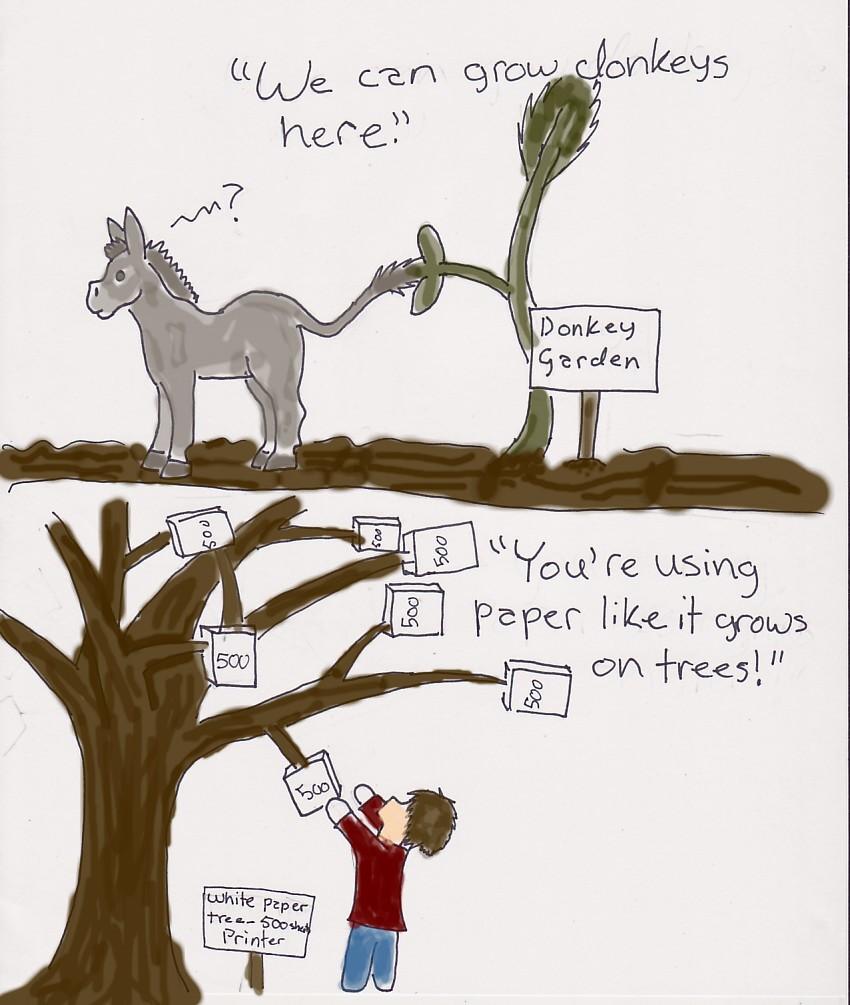 "We can grow donkeys
here."
~~?
Donkey
Garden
500
500
500
500
500
500
500
"You're using
paper like it grows
on trees!"
White paper
tree - 500 sheet
Printer